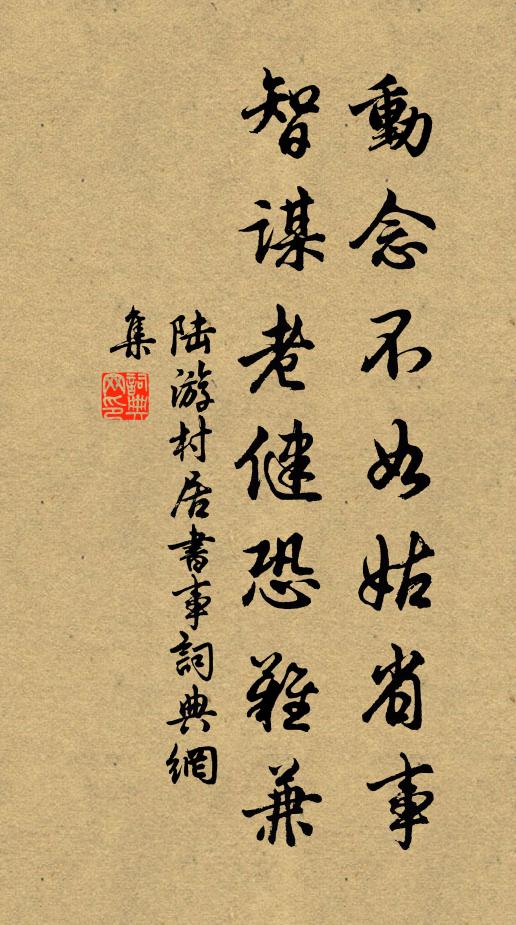 動念不如姑省事
智謀老健恐難兼
陸游村居書事詞典網
集
詞典
网印